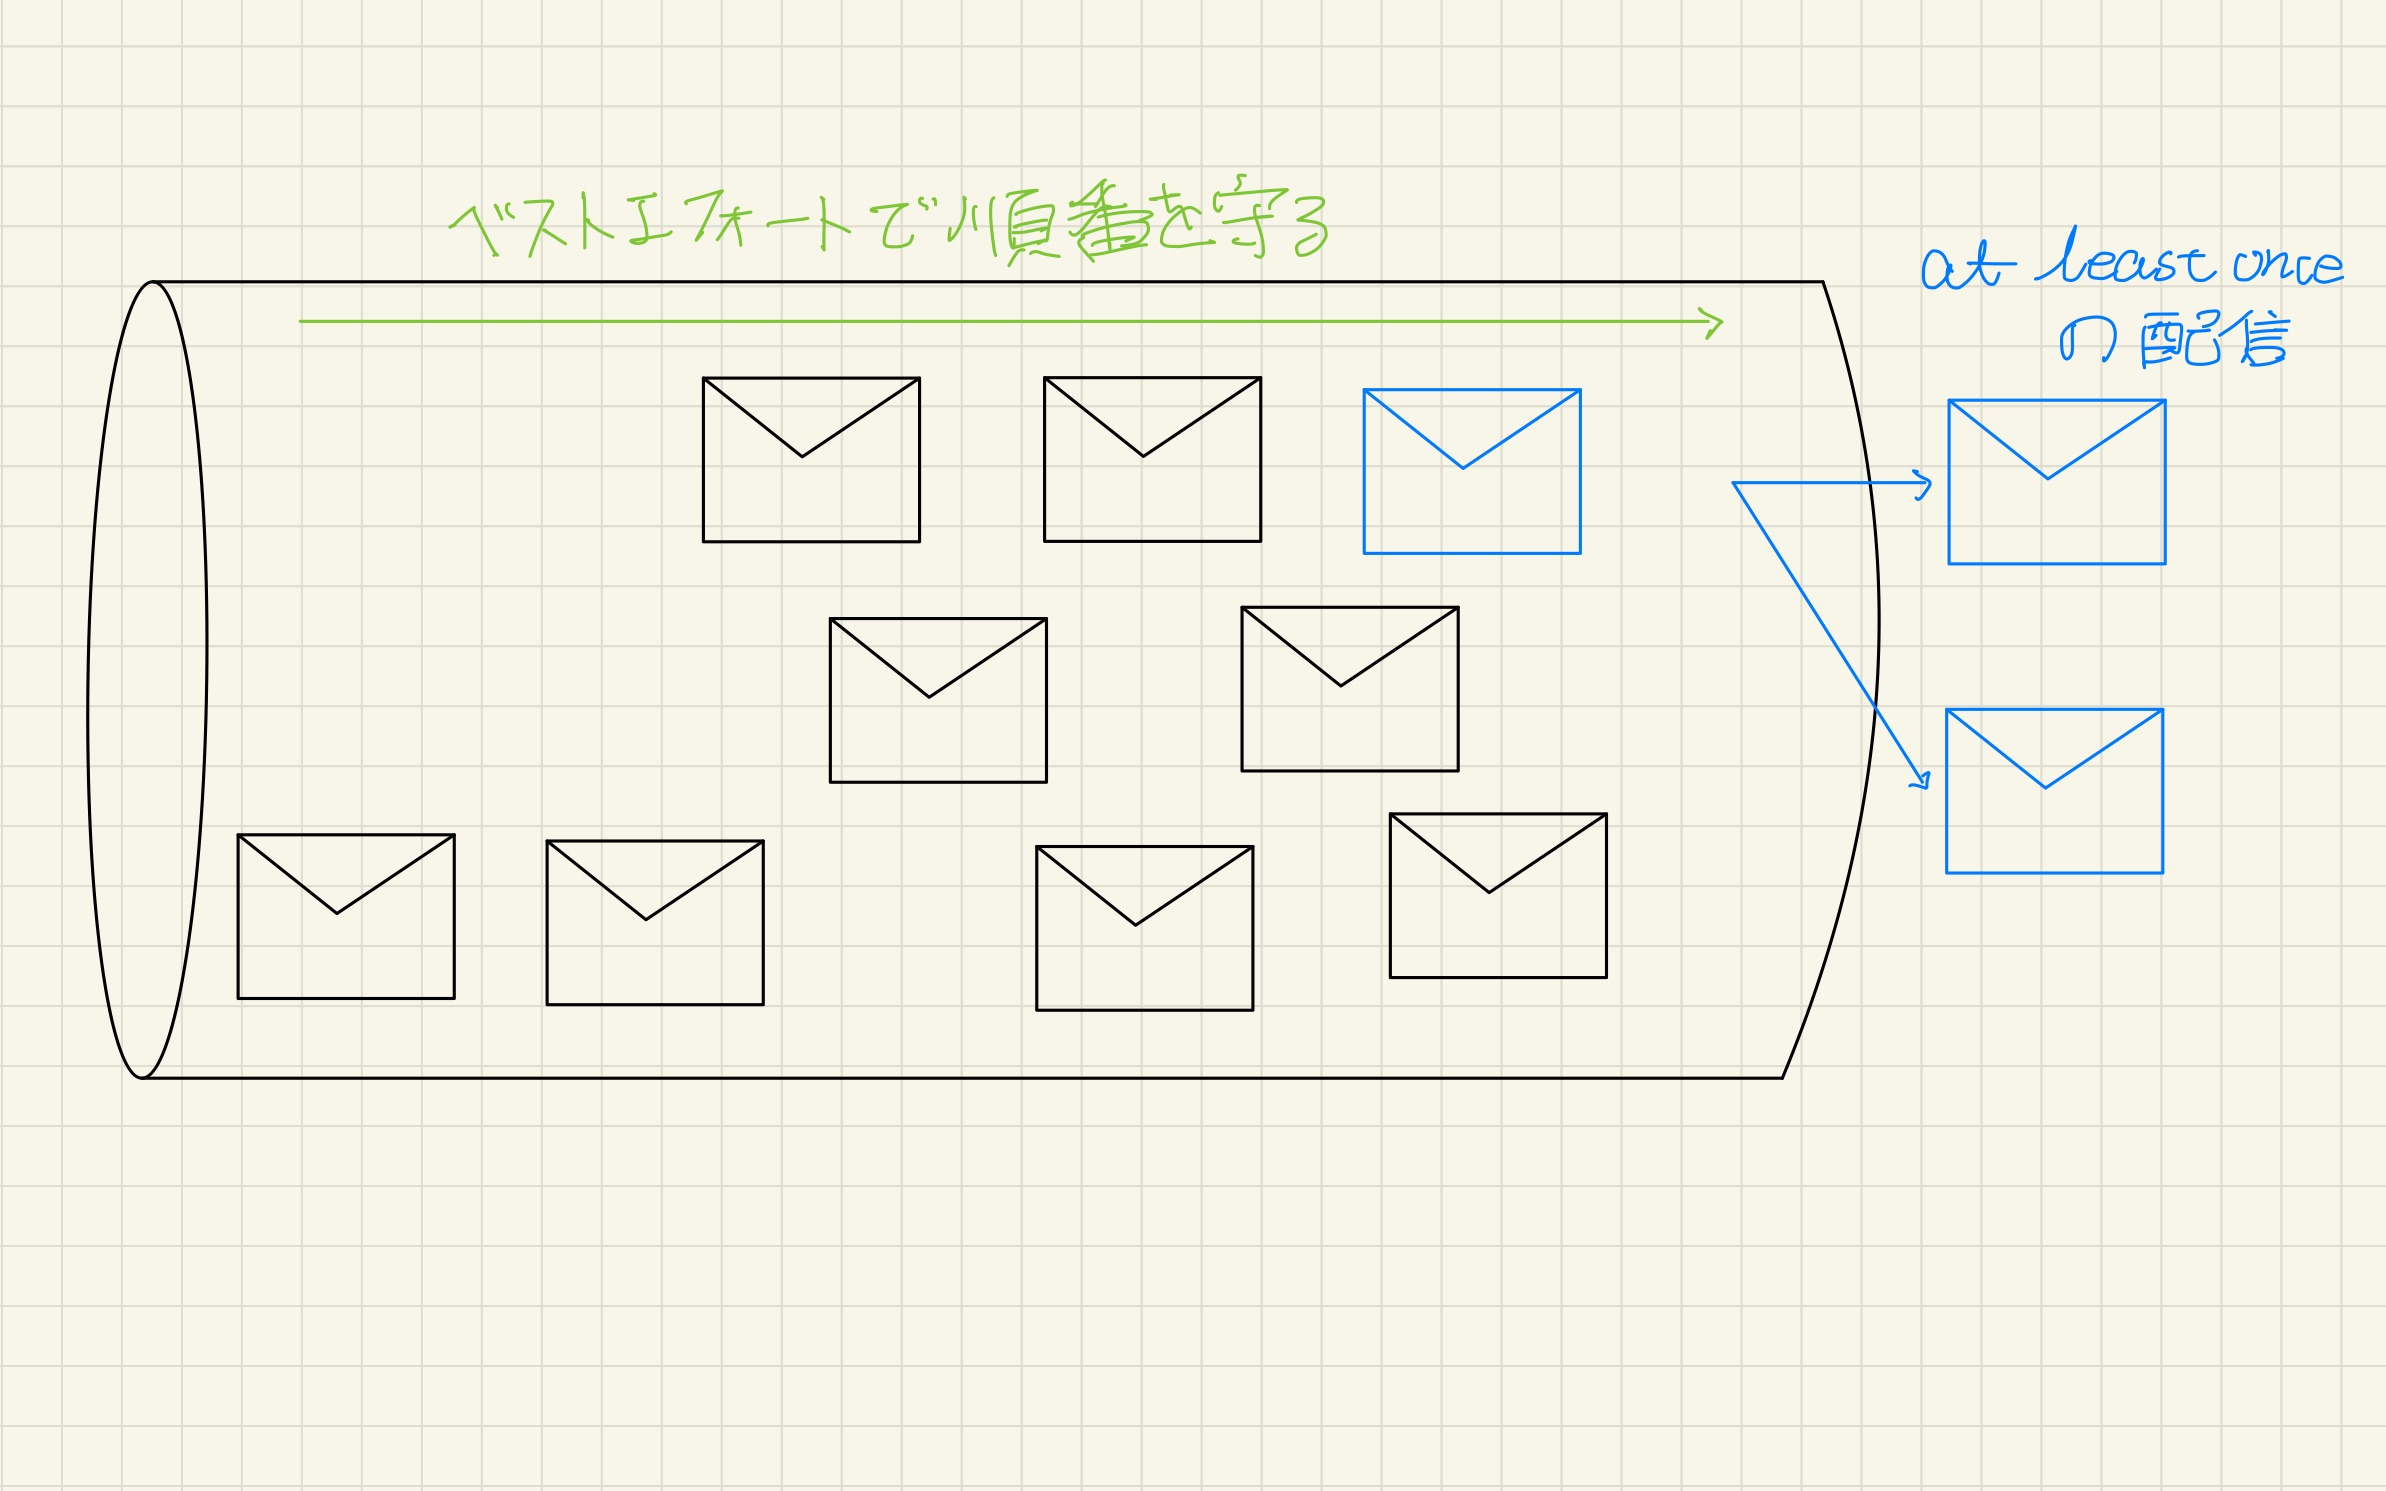 ベストエフォートで順番を守る
at least once
の配信